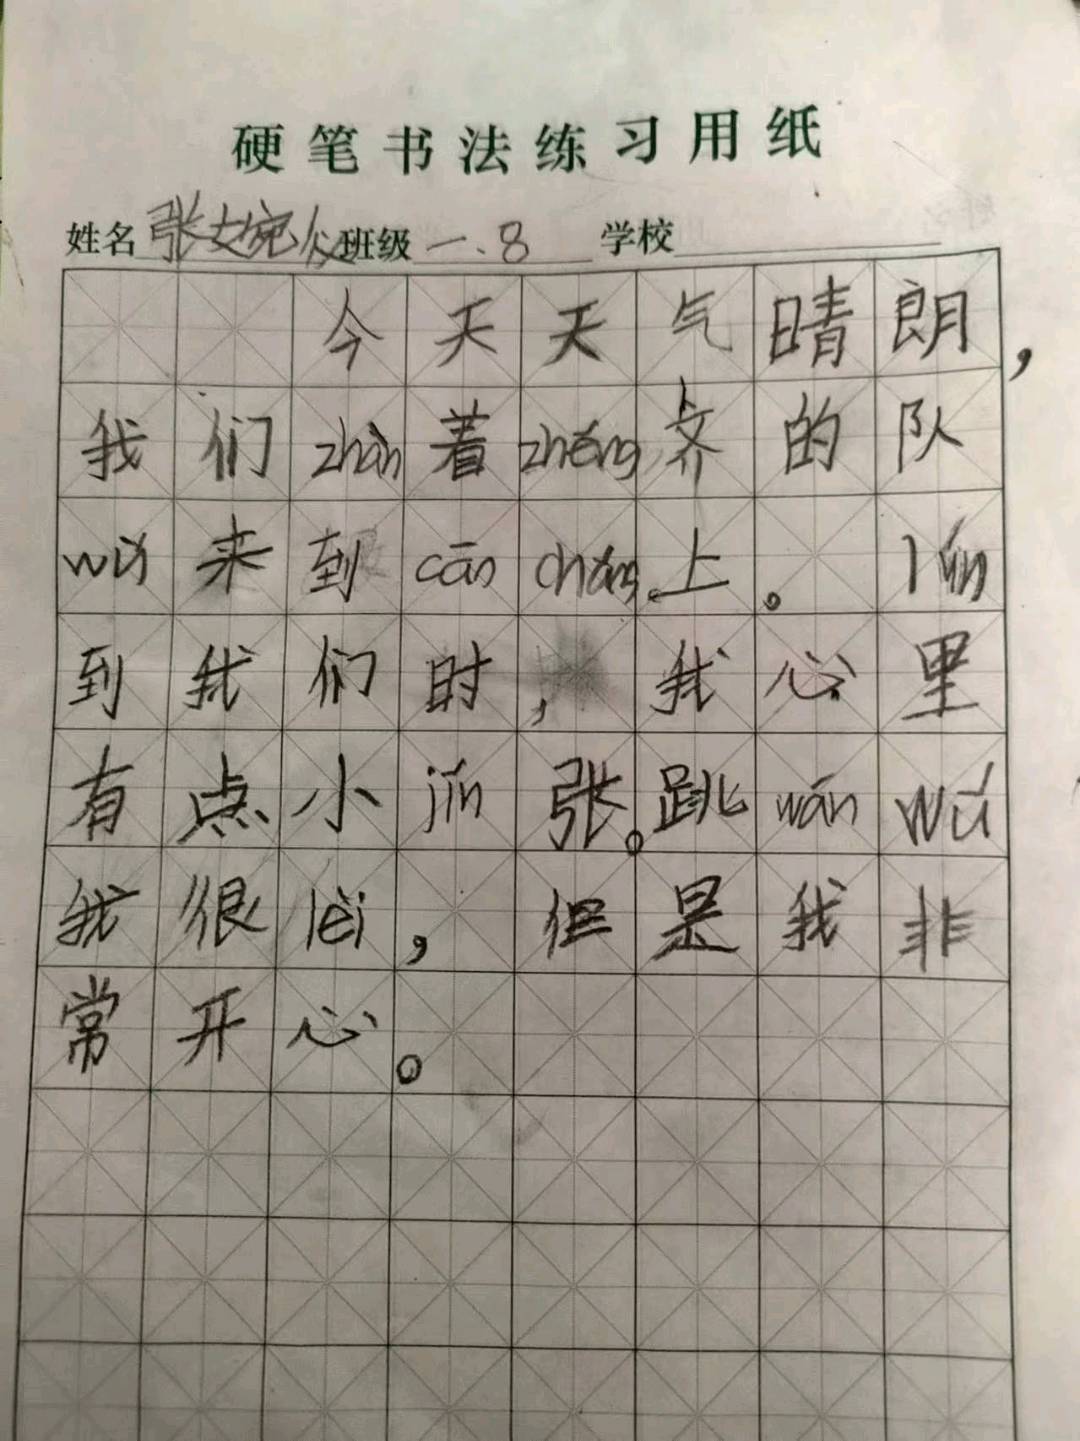 硬笔书法练习用纸
姓名 张婉仪 班级 一.8 学校
今天天气晴朗，
我们zhàn着zhěng齐的队
wǔ来到cāo chǎng上。lún
到我们时，我心里
有点小jǐn张。跳wán wǔ
我很lèi，但是我非
常开心。